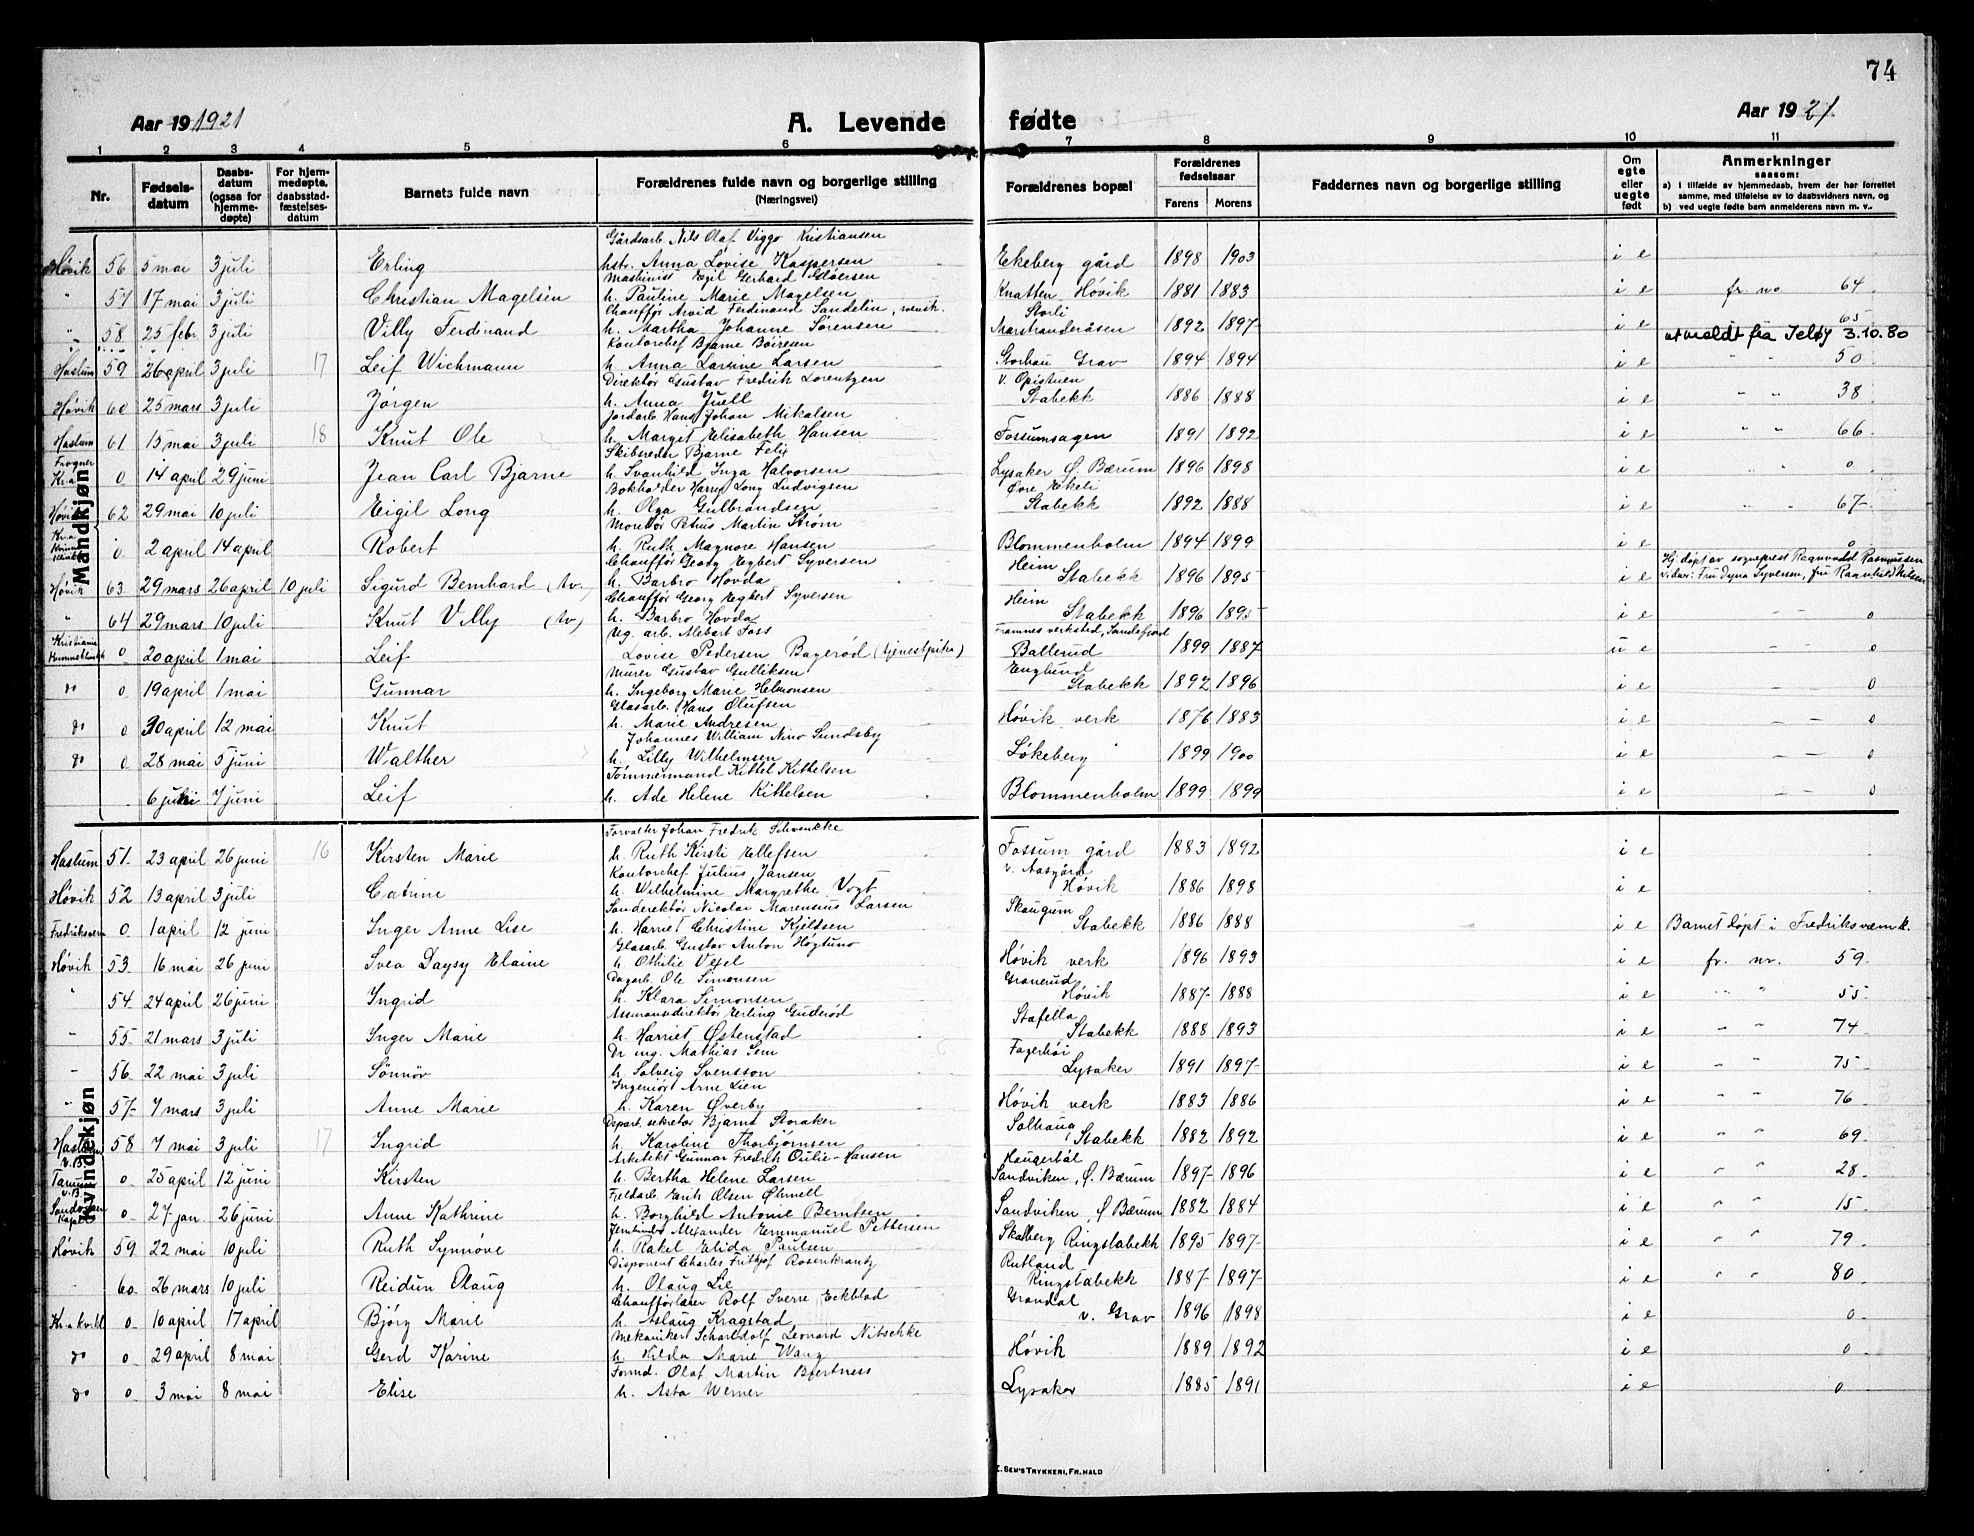 74
Aar 19 1921 A. Levende fødte Aar 19 21.
1 2 3 4 5 6 7 8 9 10 11
Nr. Fødsels-datum Daabs-datum (ogsaa for hjemme-døpte) For hjem-medøpte, daabsstad-fæstelses-datum Barnets fulde navn Forældrenes fulde navn og borgerlige stilling (Næringsvei) Forældrenes bopæl Forældrenes fødselsaar Farens Morens Faddernes navn og borgerlige stilling Om egte eller uegte født Anmerkninger saasom:
a) I tilfælde av hjemmedaab, hvem der har forrettet samme, med tilføielse av to daabsvidners navn, og
b) ved uegte fødte barn anmelderens navn m. v..
Mandkjøn
Gårdsarb. Nils Olaf Viggo Kristiansen
Høvik 56 5 mai 3 juli Erling hstr. Anna Lovise Kaspersen Ekeberg gård 1898 1903 i e
Maskinist Egil Gerhard Gløersen
" 57 17 mai 3 juli Christian Magelsen h. Pauline Marie Magelsen Knatten Høvik 1881 1883 i e fr. no 64
Chauffør Arvid Ferdinand Sandelin, svensk. Storli
" 58 25 febr. 3 juli Villy Ferdinand h. Martha Johanne Sørensen Marstranderåsen 1892 1897 i e 65 utmeldt fra Jeløy 3.10.80
Kontorchef Bjarne Böiesen
Haslum 59 26 april 3 juli 17 Leif Wichmann h. Anna Larsine Larsen Storhau Grav 1894 1894 i e " " 50
Direktør Gustav Fredrik Lorentzen v. Opistuen
Høvik 60 25 mars 3 juli Jørgen h. Anna Juell Stabekk 1886 1888 i e " " 38
Jordarb. Hans Johan Mikalsen
Haslum 61 15 mai 3 juli 18 Knut Ole h. Marget Elisabeth Hansen Fossumsagen 1891 1892 i e " " 66
Skibsreder Bjarne Felix
Frogner Kr.a 0 14 april 29 juni Jean Carl Bjarne h. Svanhild Inga Halvorsen Lysaker Ø. Bærum 1896 1898 i e " 0
Bokholder Harry Long Ludvigsen Øvre Ekeli
Høvik 62 29 mai 10 juli Eigil Long h. Olga Gulbrandsen Stabekk 1892 1888 i e " " 67
Montør Petrus Martin Strøm
Kr.a 0 2 april 14 april Robert h. Ruth Magnore Hansen Blommenholm 1894 1899 i e 0
Chauffør Georg Egbert Syversen Heim Hj. døpt av sogneprest Ragnvald Rasmussen
Høvik 63 29 mars 26 april 10 juli Sigurd Bernhard (Tv.) h. Barbro Hovda Stabekk 1896 1895 i e Vidner: Fru Dyna Syversen, fru Ragnhild Nilsen
Chauffør Georg Egbert Syversen Heim
" 64 29 mars 10 juli Knut Villy (Tv.) h. Barbro Hovda Stabekk 1896 1895 i e — — 0
Ug. arb. Albert Foss Framnes verksted, Sandefjord
Kristiania Kvinneklinikk 0 20 april 1 mai Leif Lovise Pedersen Bagerød (tjenestpike) Ballerud 1899 1887 u e — — 0
Murer Gustav Gulliksen Englund
do 0 19 april 1 mai Gunnar h. Ingeborg Marie Helmonsen Stabekk 1892 1896 i e — — 0
Glasarb. Hans Olufsen
do 0 30 april 12 mai Knut h. Marie Andresen Høvik verk 1876 1883 i e — — 0
Johannes William Nino Sundsby
do 0 28 mai 5 juni Walther h. Lilly Wilhelmsen Løkeberg 1899 1900 i e — — 0
Tømmermand Kittel Kittelsen
6 juni 7 juni Leif h. Ade Helene Kittelsen Blommenholm 1899 1899 i e — — 0
Kvindekjøn
Forvalter Johan Fredrik Schvencke
Haslum 51. 23 april 26 juni 16 Kirsten Marie h. Ruth Kirsti Ellefsen Fossum gård 1883 1892 i e
Kontorchef Julius Jansen v. Aasgård
Høvik 52 13 april 3 juli Catrine h. Wilhelmine Margrethe Vogt Høvik 1886 1898 i e
Nicolai Marensius Larsen Skaugum
Fredriksvern 0. 1 april 12 juni Inger Anne Lise h. Harriet Christine Kjeldsen Stabekk 1886 1888 i e Barnet døpt i Fredriksværn k.
Glasarb. Gustav Anton Høgtuno
Høvik 53. 16 mai 26 juni Svea Daysy Elaine h. Othilie Vexel Høvik verk 1896 1893 i e fr. nr. 59.
Dagarb. Ole Simonsen Granerud
" 54. 24 april 26 juni Ingrid h. Klara Simonsen Høvik 1887 1888 i e " " 55.
Assuransedirektör Erling Guderød Stafella
" 55. 21 mars 3 juli Inger Marie h. Harriet Østenstad Stabekk 1888 1893 i e " " 74
Dr ing. Mathias Sem Fagerhøi
" 56. 22 mai 3 juli Sønnøv h. Solveig Svensson Lysaker 1891 1897 i e " " 75
Ingeniør Arne Lien
" 57 7 mars 3 juli Anne Marie h. Karen Øverby Høvik verk 1883 1886 i e " " 76
Depart. sekretær Bjarne Storaker Solhaug
Haslum 58 7 mai 3 juli 17 Ingrid h. Karoline Thorbjørnsen Stabekk 1882 1892 i e " " 69
Arkitekt Gunnar Fredrik Oulie-Hansen Haugerbål
Tanum v. B. 0. 25 april 12 juni Kirsten h. Bertha Helene Larsen Sandviken, Ø. Bærum 1897 1896 i e " " 28
Erik Olsen Öhrnell
Sandviken Kapel 0. 27 jan. 26 juni Anne Kathrine h. Borghild Antonie Berntsen Sandviken, Ø Bærum 1882 1884 i e " " 15
Alexander Emmanuel Pettersen
Høvik 59 22 mai 10 juli Ruth Synnøve h. Rakel Elida Paulsen Skalberg Ringstabekk 1895 1897 i e " " 79
Disponent Charles Frithjof Rosenkrantz Rutland
" 60. 26 mars 10 juli Reidun Olaug h. Olaug Lie Ringstabekk 1887 1897 i e " " 80
Chaufførlærer Rolf Sverre Eckblad Grandal
Kr.a kv.kl 0. 10 april 17 april Bjørg Marie h. Aslaug Kragstad v. Grav 1896 1898 i e 0
Mekaniker Scharldolf Leonard Nitschke
do 0. 29 april 8 mai Gerd Karine h. Hilda Marie Wang Høvik 1889 1892 i e 0
Formd. Olaf Martin Bjertness
do 0. 3 mai 8 mai Elise h. Asta Werner Lysaker 1885 1891 i e 0
E. SEM'S TRYKKERI, FR.HALD